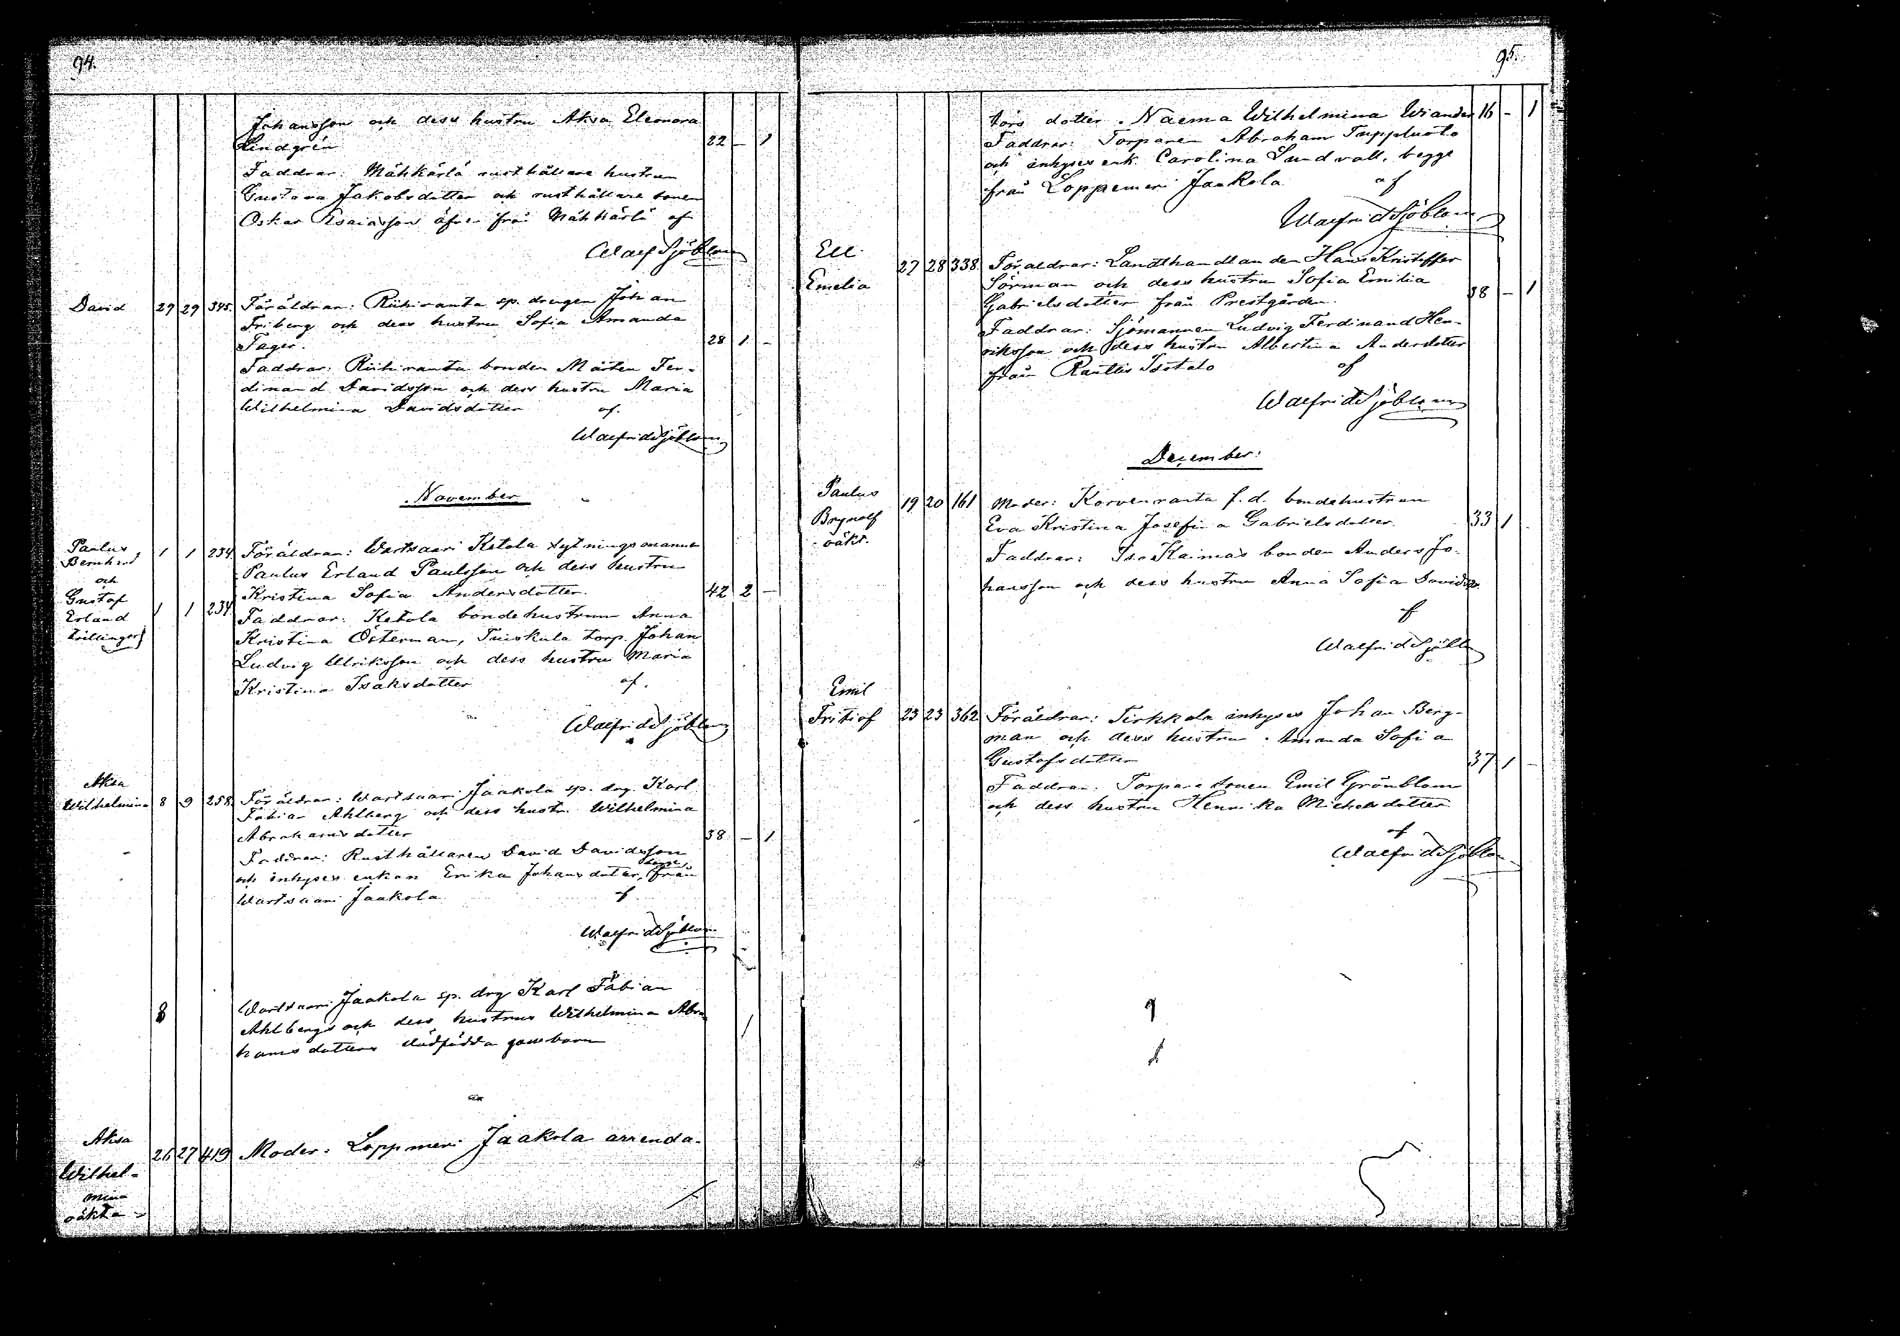 94.
Johansson och dess hustru Aksa Eleonora
Lindgrén 22 – 1
Faddrar: Mähkärlä rusthållare hustrun
Gustava Jakobsdotter och rusthållare sonen
Oskar Esaiasson äfven från Mähkärlä af
Walf Sjöblom
David 29 29 345. Föräldrar: Riihiranta sp. drengen Johan
Friberg och dess hustru Sofia Amanda
Tager. 28 1 –
Faddrar: Riihiranta bonden Mårten Fer-
dinand Davidsson och dess hustru Maria
Wilhelmina Davidsdotter af.
Walfrid Sjöblom
November
Paulus 1 1 234. Föräldrar: Wartsaari Ketola sytningsmannen
Bernhard
Paulus Erland Paulsson och dess hustru
och
Kristina Sofia Andersdotter. 42 2 –
Gustaf 1 1 234. Faddrar: Ketola bondehustrun Anna
Erland
Kristina Österman, torp. Johan
tvillingar
Ludvig Ulriksson och dess hustru Maria
Kristina Isaksdotter af.
Walfrid Sjöblom
Aksa
Wilhelmina 8 9 258. Föräldrar: Wartsaari Jaakola sp. drg. Karl
Fabian Ahlberg och dess hustru Wilhelmina
Abrahamsdotter 38 – 1
Faddrar: Rusthållaren David Davidsson
och inhyses enkan Erika Johansdotter, begge från
Wartsaari Jaakola af
Walfrid Sjöblom
8 Wartsaari Jaakola sp. drg Karl Fabian
Ahlbergs och dess hustrus Wilhelmina Abra-
hamsdotters dödfödda gossbarn 1
Aksa
26 27 419 Moder: Loppmeri Jaakola arrenda-
Wilhel-
mina
oäkta
95.
tors dotter Naema Wilhelmina Wiander 16 – 1
Faddrar: Torparen Abraham Tuppluoto
och inhyses enk. Carolina Sundvall, begge
från Loppemeri Jaakola af
Walfrid Sjöblom
Ell
27 28 338. Föräldrar: Landthandlanden Hans Kristoffer
Emelia
Sörman och dess hustru Sofia Emilia
Gabrielsdotter från Prestgården. 38 – 1
Faddrar: Sjömannen Ludvig Ferdinand Hen-
riksson och dess hustru Albertina Andersdotter
från Isotalo af
Walfrid Sjöblom
December.
Paulus 19 20 161 Moder: Korvenranta f.d. bondehustrun
Brynolf
Eva Kristina Josefina Gabrielsdotter. 33 1 –
oäkt.
Faddrar: Iso Kaimais bonden Anders Jo-
hansson och dess hustru Anna Sofia Davidsdr.
af
Walfrid Sjöblom
Emil
Fritiof 23 23 362 Föräldrar: Tirkkala inhyses Johan Berg-
man och dess hustru Amanda Sofia
Gustafsdotter 37 1 –
Faddrar: Torpare sonen Emil Grönblom
och dess hustru Henrika Michelsdotter
af
Walfrid Sjöblom